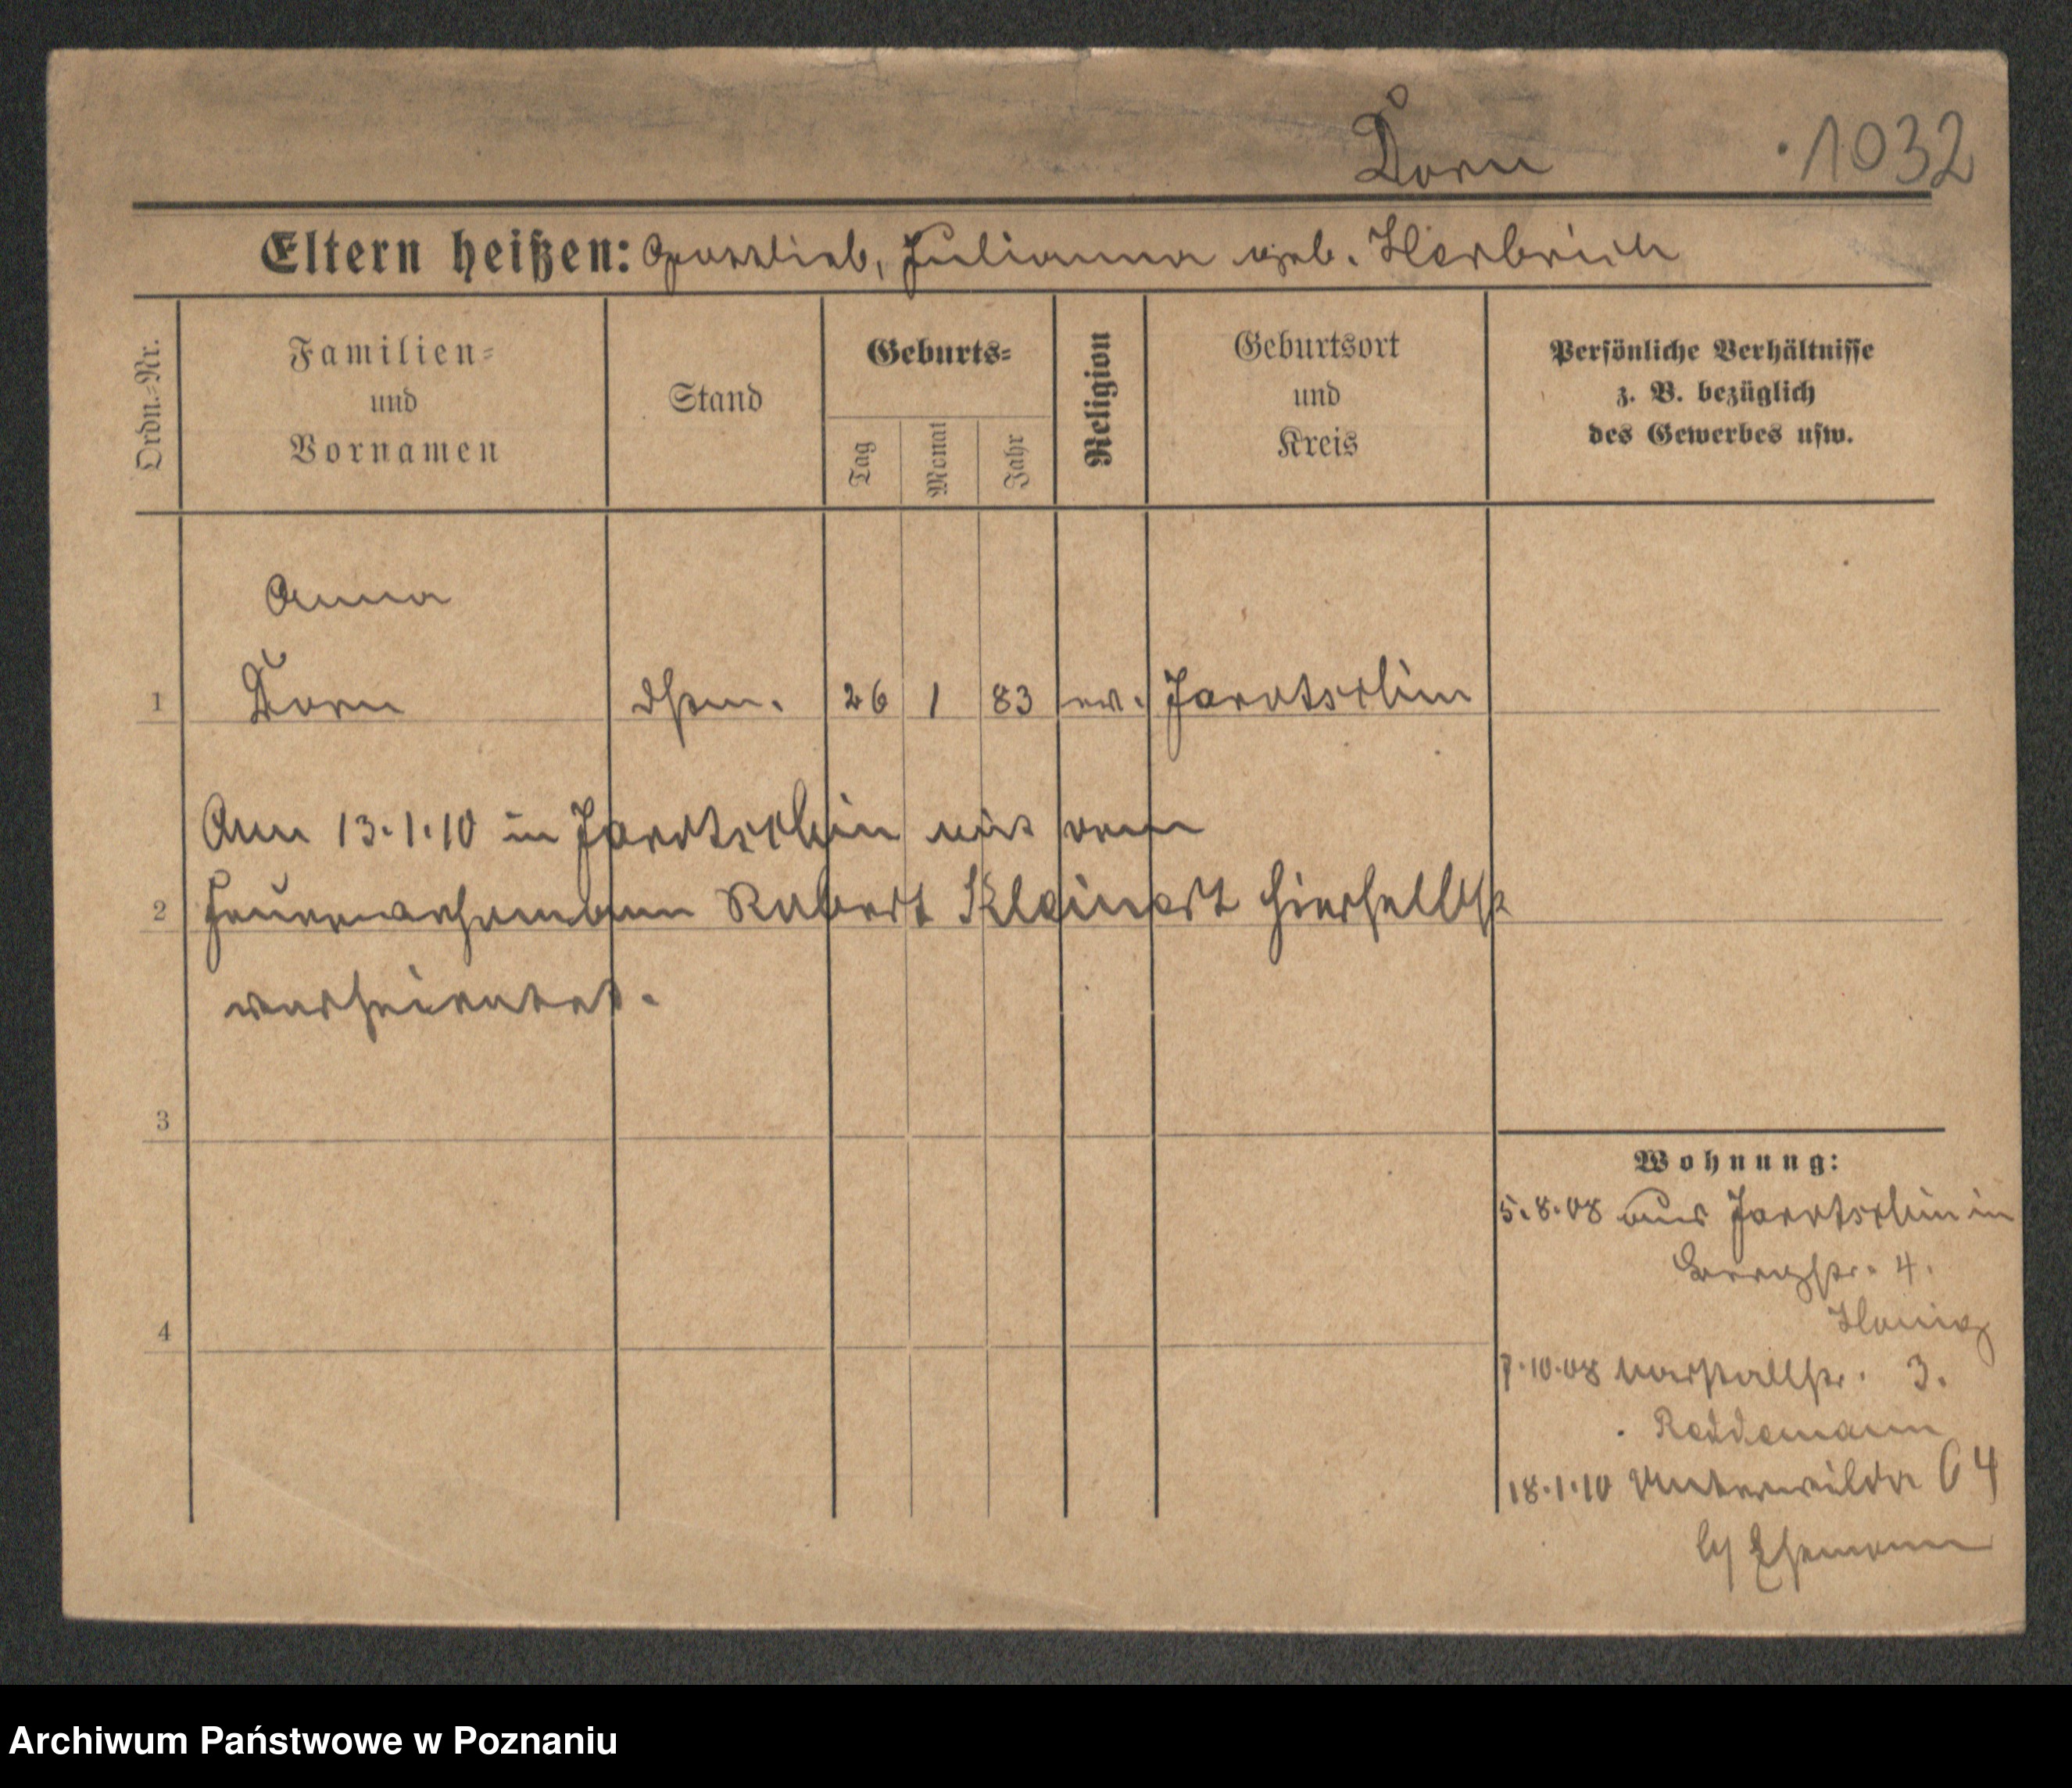 Dorn
1032
Eltern heißen: Gottlieb, Julianna geb. Herbrich
Ordn.=Nr.
Familien=
und
Vornamen
Stand
Geburts=
Tag
Monat
Jahr
Religion
Geburtsort
und
Kreis
Persönliche Verhältnisse
z. B. bezüglich
des Gewerbes usw.
Anna
1 Dorn 26 1 83 ev. Jarotschin
Am 13.1.10 in Jarotschin mit dem
2 Feuerwehrmann Robert Kleinert hierselbst
verheiratet.
3
Wohnung:
5.8.08 aus Jarotschin in
Bergstr. 4.
4
Honig
7.10.08 Marstallstr. 3.
Reddemann
18.1.10 Unterwilda 64
b/ Ehemann
Archiwum Państwowe w Poznaniu